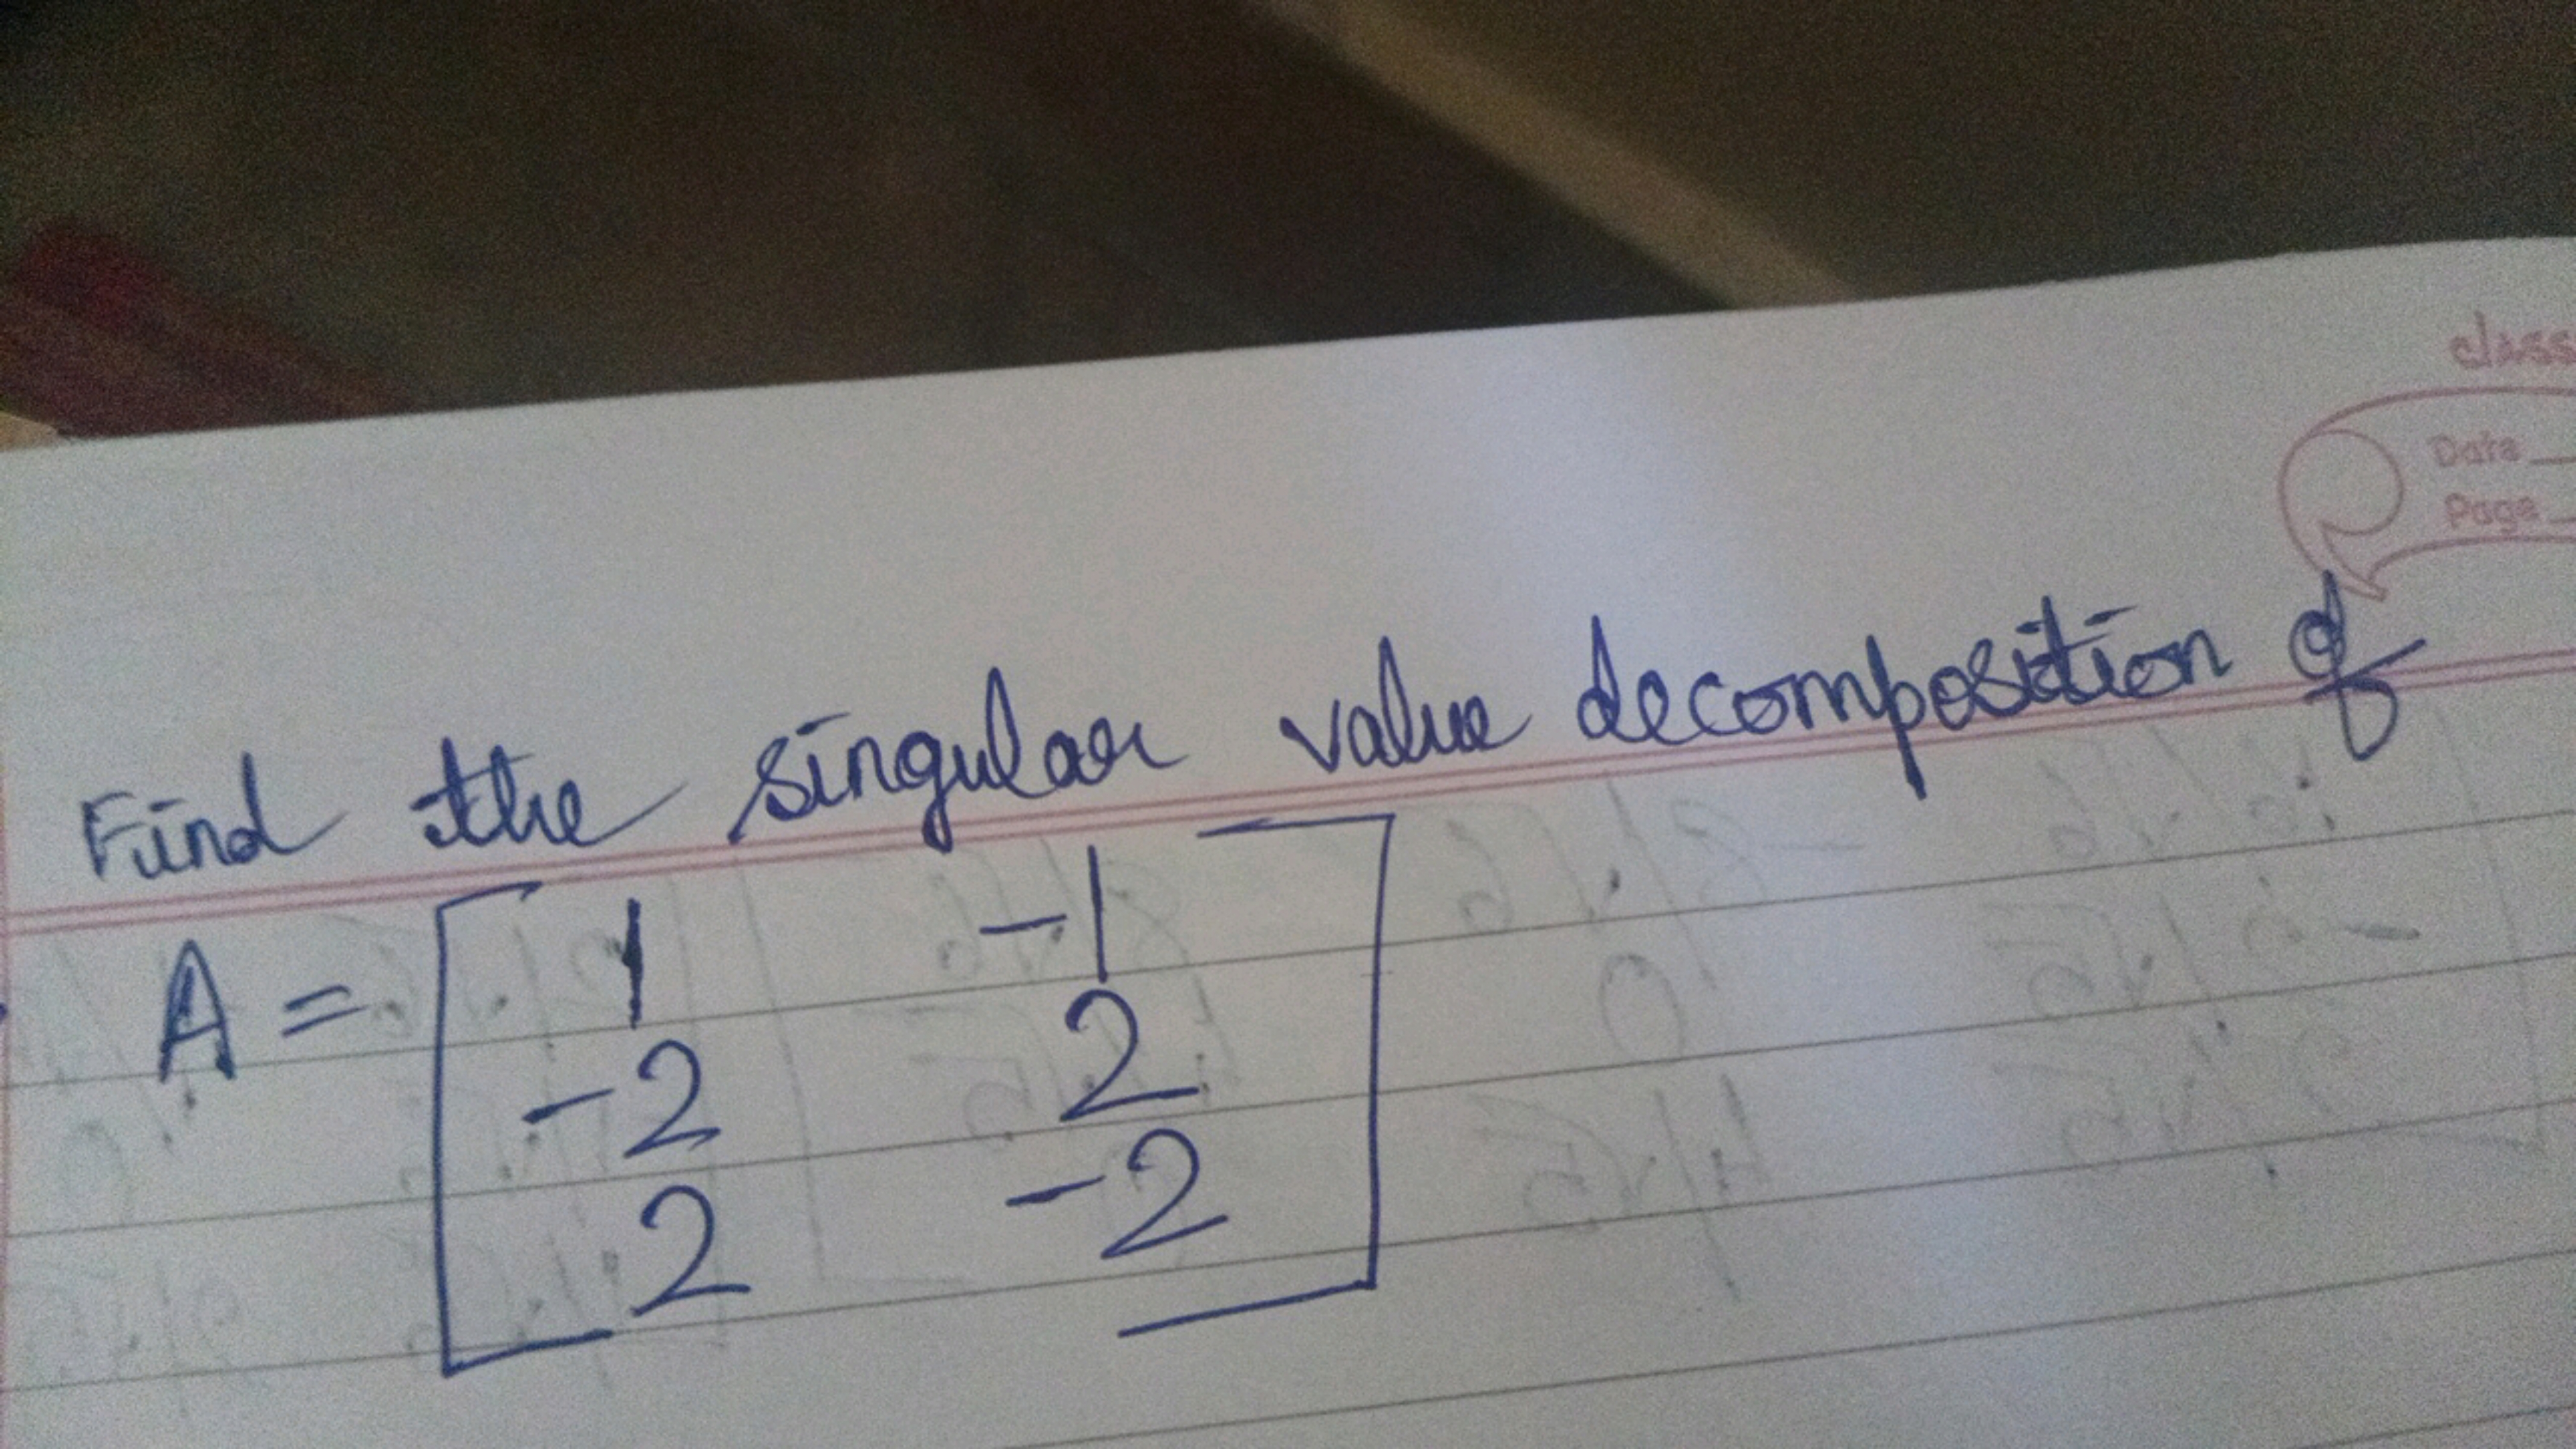 class
Date
Page
Find the singular value decomposition of
A = [ 1 -1
-2 2
2 -2 ]